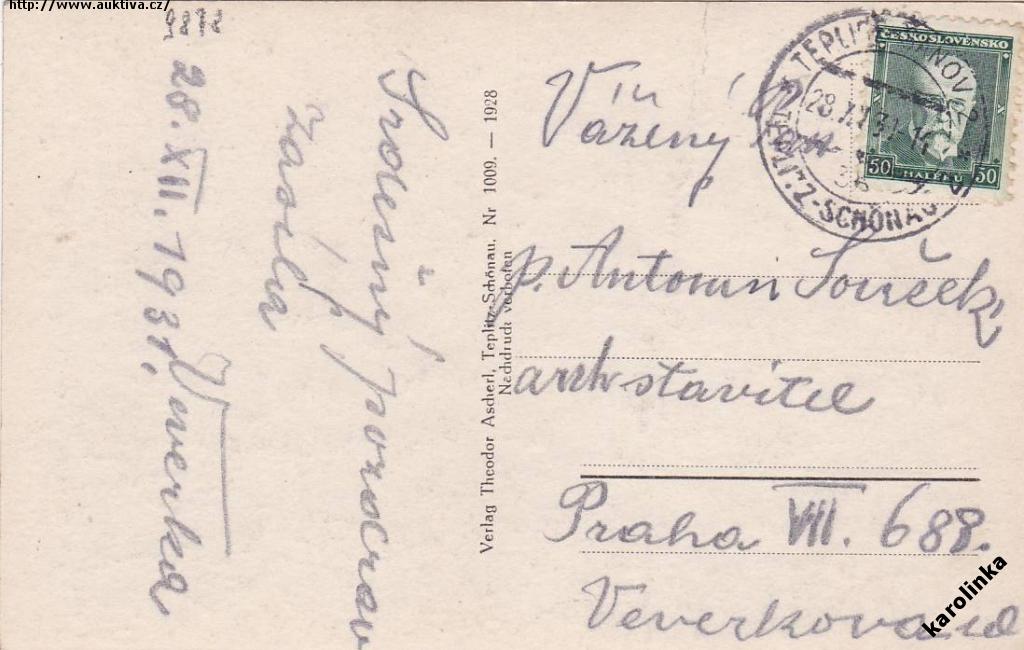 http://www.auktiva.cz/
9878
28. XII. 1931.
Srdečný pozdrav
zasílá
Vaverka
Verlag Theodor Ascherl, Teplitz-Schönau. Nr 1009. — 1928
Nachdruck verboten
TEPLITZ-SCHÖNAU
ČESKOSLOVENSKO
50 HALÉŘŮ 50
Vážený Pán
p. Antonín Souček
arch stavitel
Praha VII. 688.
Veverkova ul
karolinka